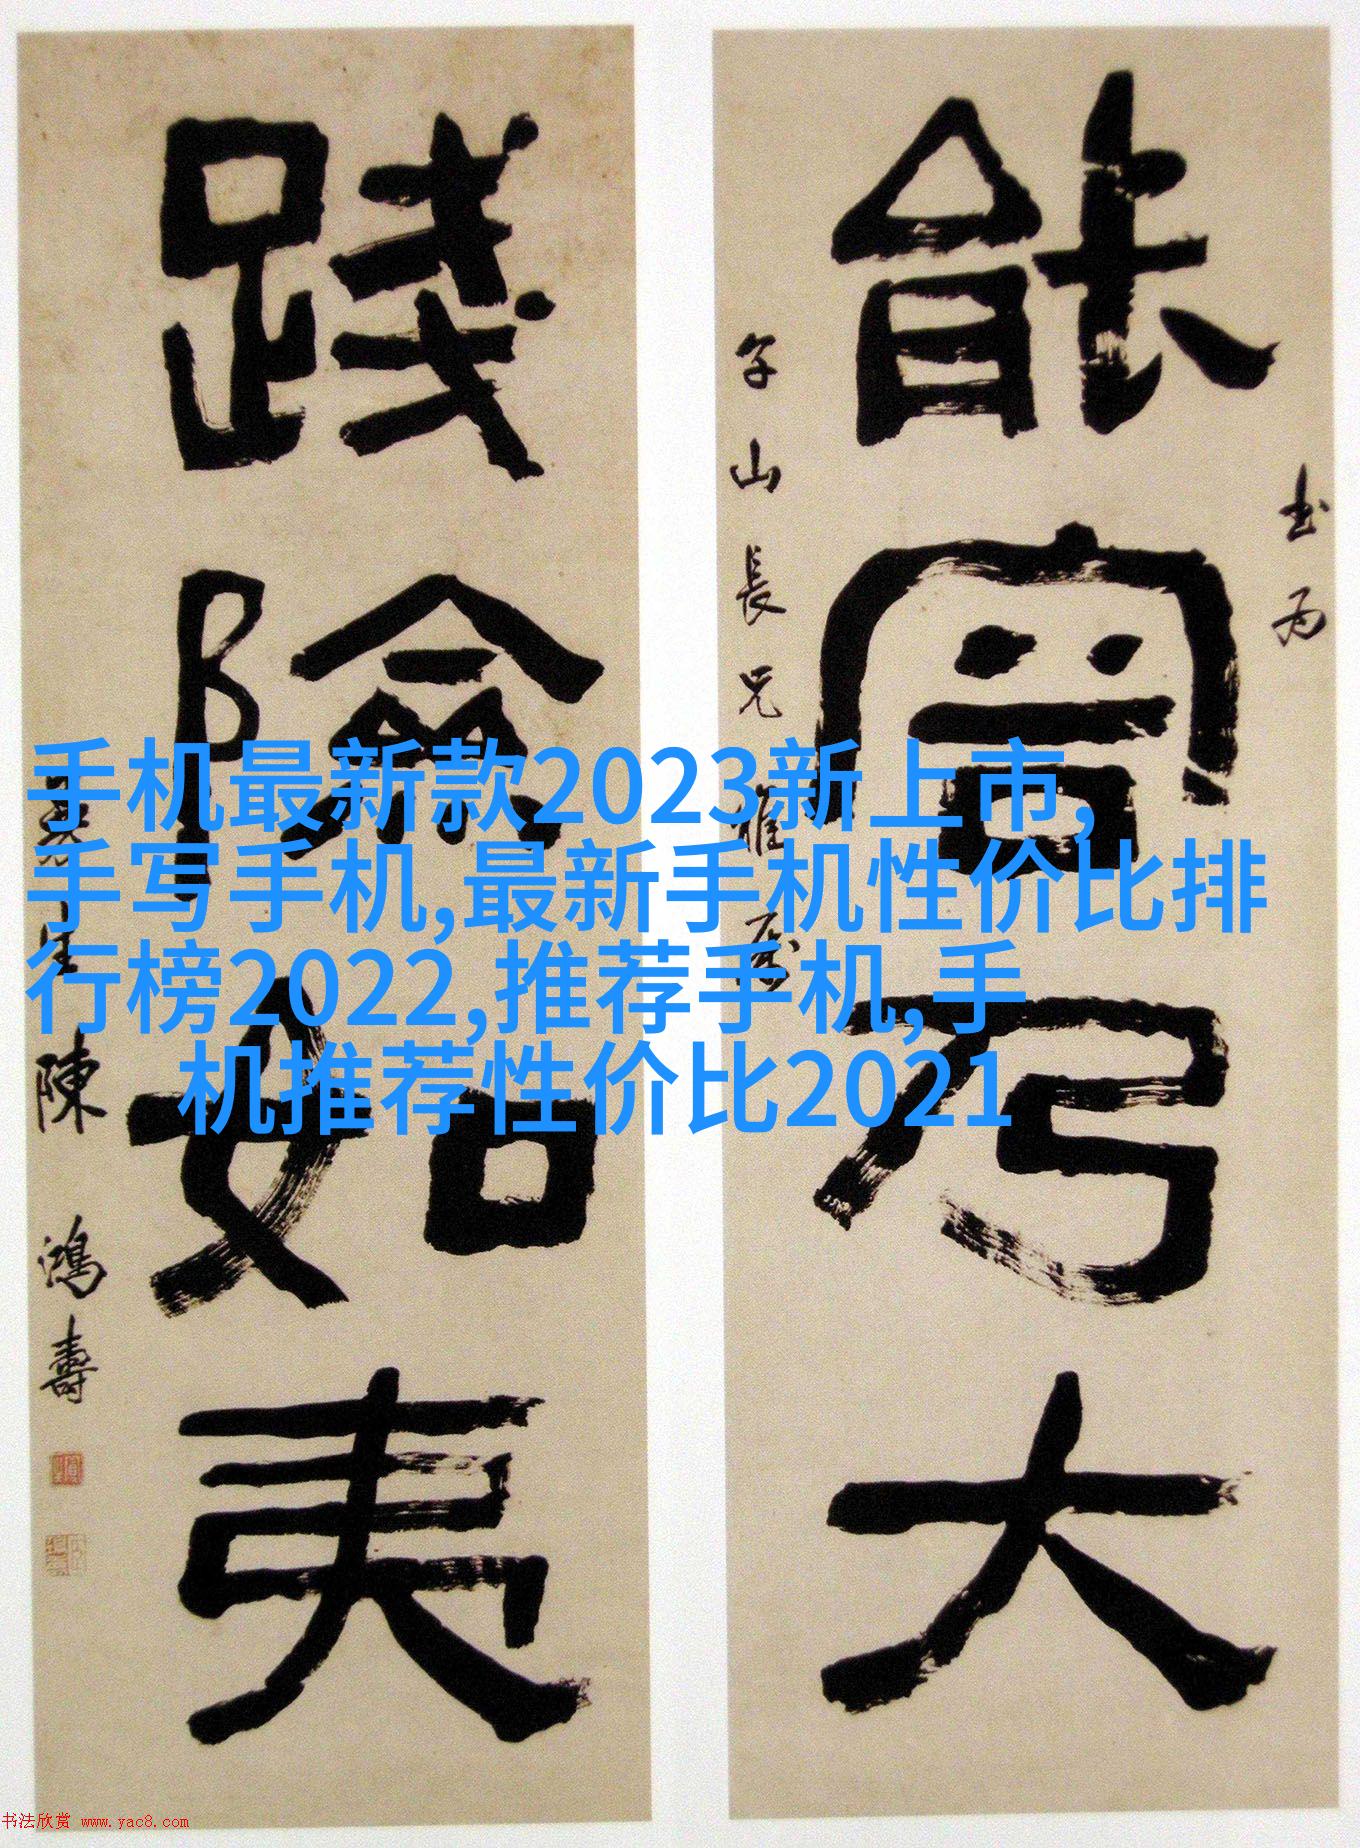 書為
能容乃大
子山長兄雅屬
踐險如夷
曼生陳鴻壽
手机最新款2023新上市,
手写手机,最新手机性价比排
行榜2022,推荐手机,手
机推荐性价比2021
书法欣赏 www.yac8.com